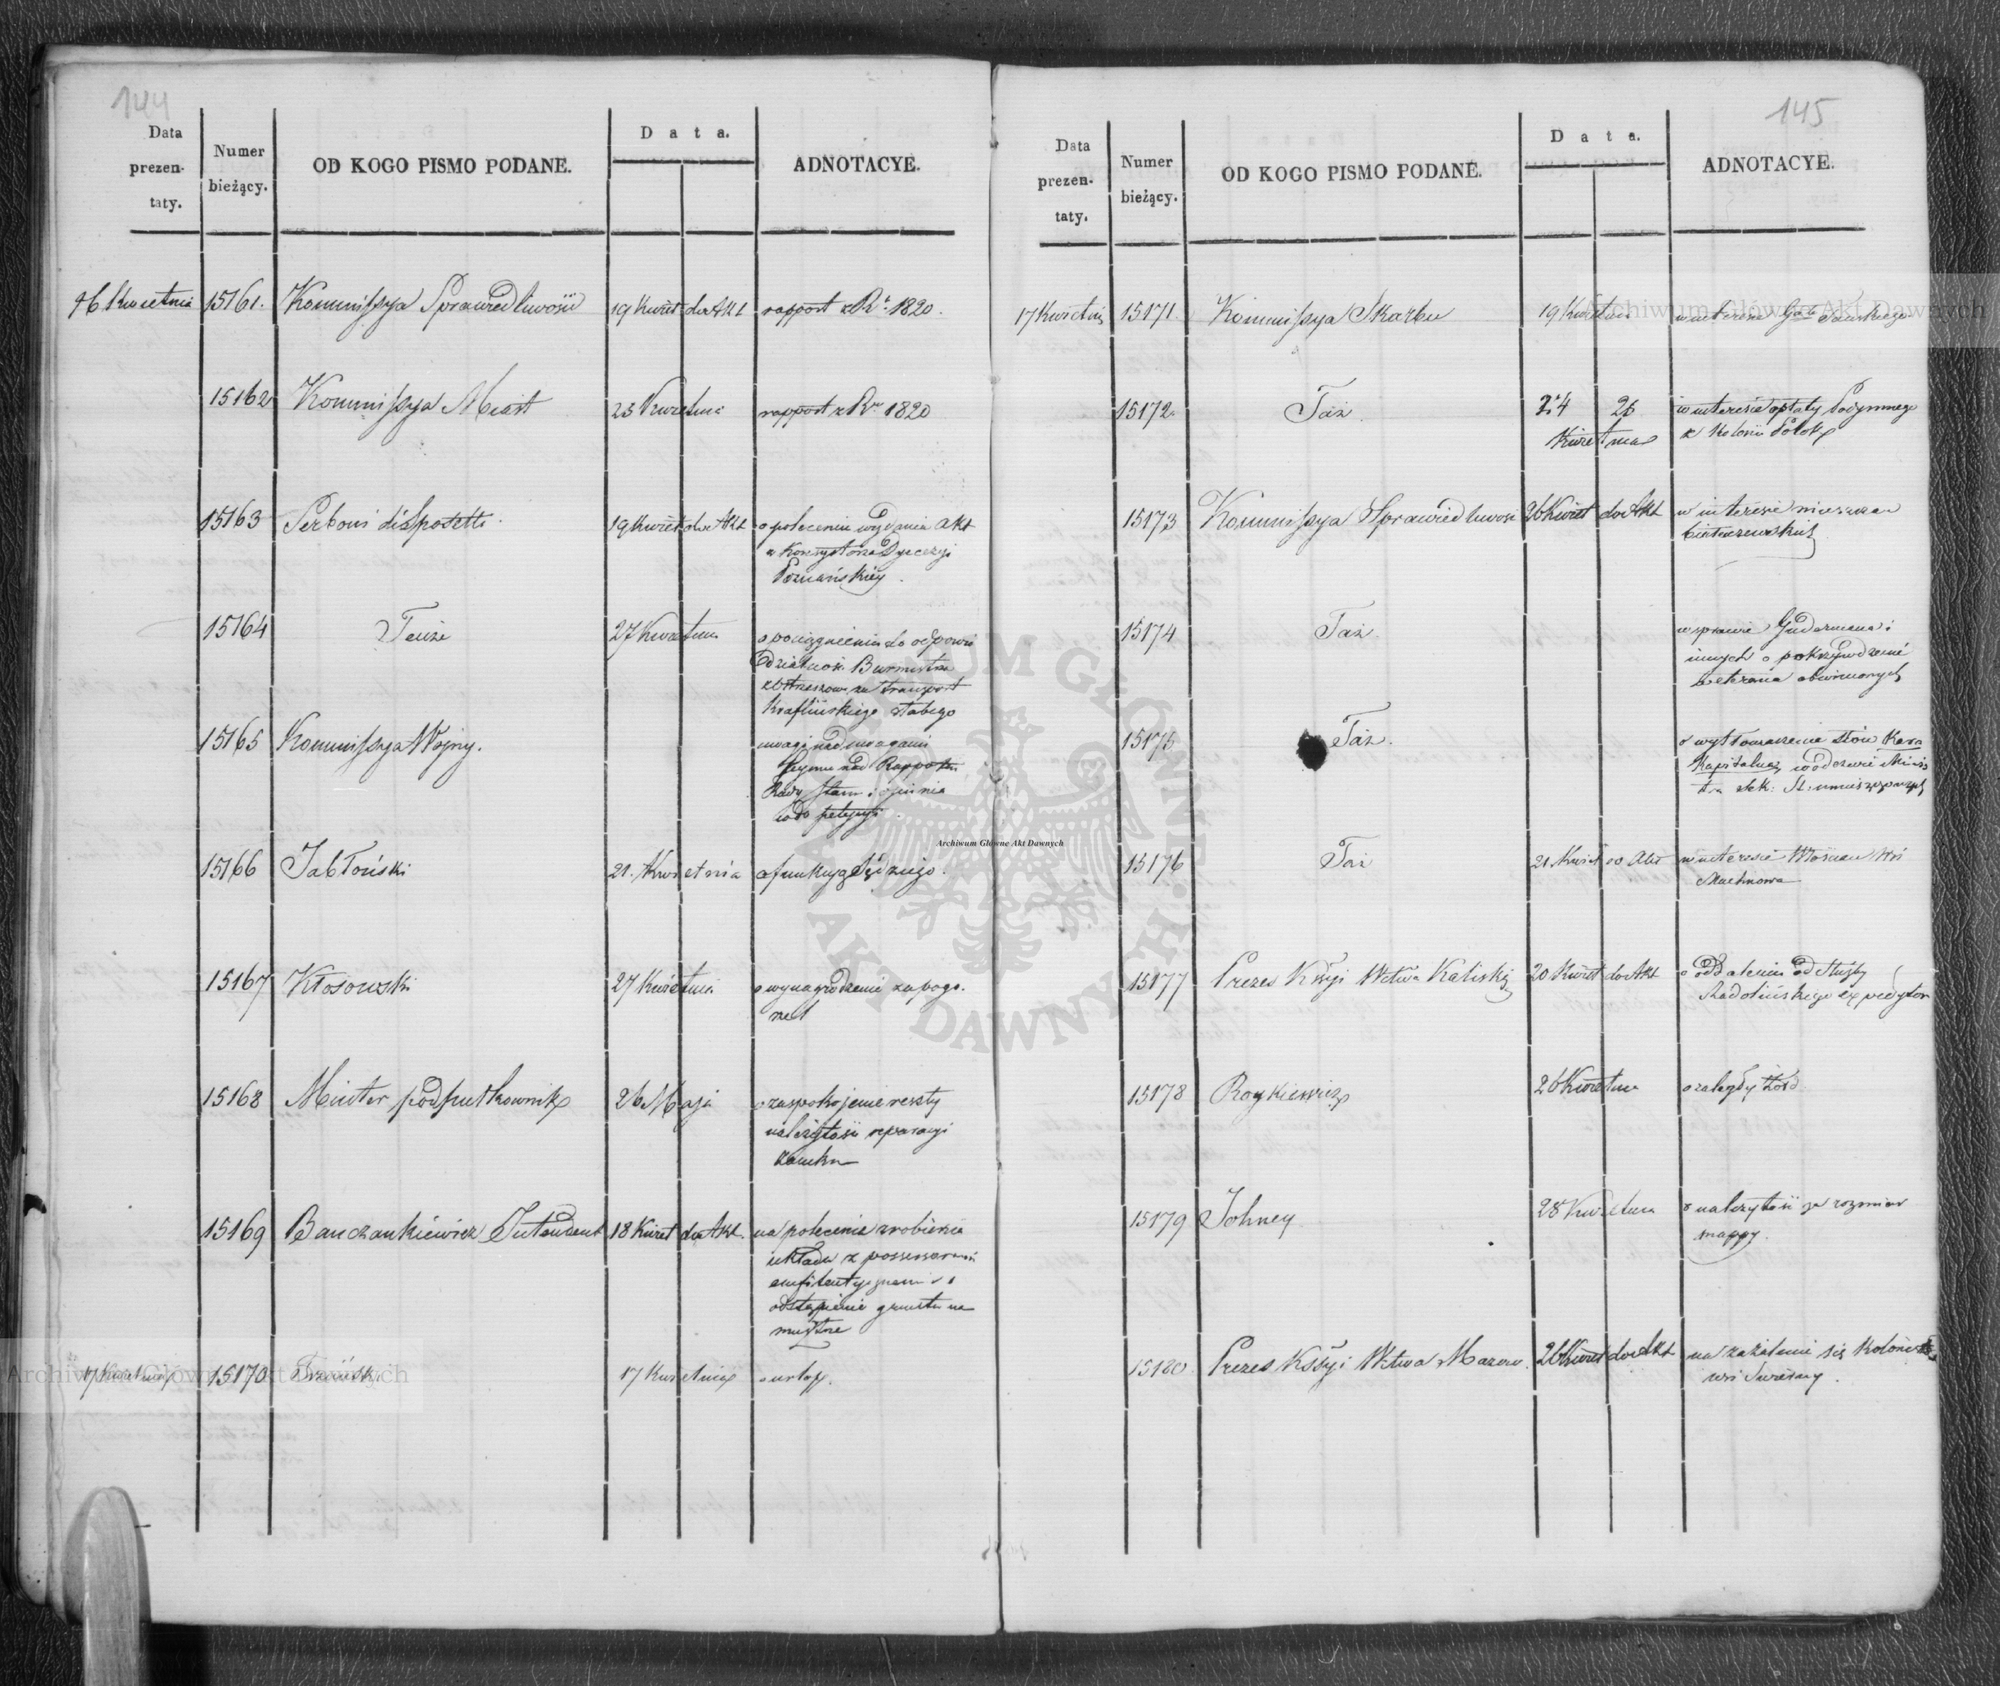 144
Data prezen- taty.
Numer bieżący.
OD KOGO PISMO PODANE.
Data.
ADNOTACYE.
16 Kwietnia 15161. Kommissya Sprawiedliwości 19 Kwiet do Akt rapport z Ru 1820.
15162 Kommissya Miast 23 Kwietnia rapport z Ru 1820
15163 Serboni di Sposetti. 19 Kwiet do Akt o polecenie wydania Akt
z Konsystorza Dyecezyi
Poznańskiey.
15164 Tenże 27 Kwietnia o pociągnienie do odpowie
dzialności Burmistrza
za transport
słabego
15165 Kommissya Woyny. uwagi nad uwagami
Seymu nad Rapportem
Rady Stanu i opinia
co do petycyi.
15166 Jabłoński 21. Kwietnia o funkcyą Sędziego.
15167 Kłosowski 27 Kwietnia o wynagrodzenie za pogo-
rzel
15168 Minter podpułkownik 26 Maja o zaspokojenie reszty
należytości reparacyi
zamku
15169 Banczankiewicz Intendent 18 Kwiet do Akt. na polecenie zrobienia
układu z possessorami
emfiteutycznemi o
odstąpienie gruntu na
musztrę
17 Kwietnia 15170 17 Kwietnia o urlop.
145
Data prezen- taty.
Numer bieżący.
OD KOGO PISMO PODANE.
Data.
ADNOTACYE.
17 Kwietnia 15171 Kommissya Skarbu 19 Kwietnia w interesie
15172 Taż. 24 26 w interesie opłaty Podymnego
Kwietnia z Kolonii
15173 Kommissya Sprawiedliwości 26 Kwiet do Akt w interesie mieszczan
15174 Taż. w sprawie Guderiana i
innych o pokrzywdzenie
obwinionych
15175 Taż. o wytłomaczenie słów Kara
Kapitalna, w odezwie Minis
tra Sek: St: umieszczonych
15176 Taż 21 Kwiet do Akt w interesie Włościan wsi
Machnowa
15177 Prezes Kssyi Wztwa Kaliskie 20 Kwiet do Akt o oddalenie od służby
Radolińskiego expedytora
15178 Roykiewicz 26 Kwietnia o zaległy żołd
15179 Johney 28 Kwietnia o należytość za rozmiar
mappy.
15180 Prezes Kssyi Wztwa Mazow. 26 Kwiet do Akt na zażalenie się Kolonistów
wsi
Archiwum Główne Akt Dawnych
Archiwum Główne Akt Dawnych
Archiwum Główne Akt Dawnych
ARCHIWUM GŁÓWNE AKT DAWNYCH